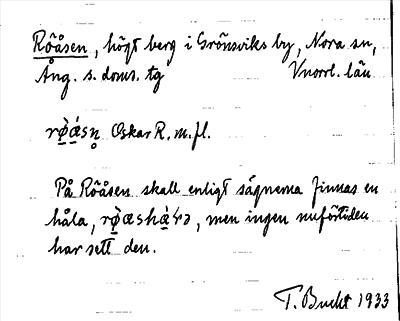 Röåsen, högt berg i Grönsviks by, Nora sn,
Ång. s. doms. tg Vnorrl. län
Oskar R. m. fl.
På Röåsen skall enligt sägnerna finnas en
håla, men ingen nuförtiden
har sett den.
T. Bucht 1933